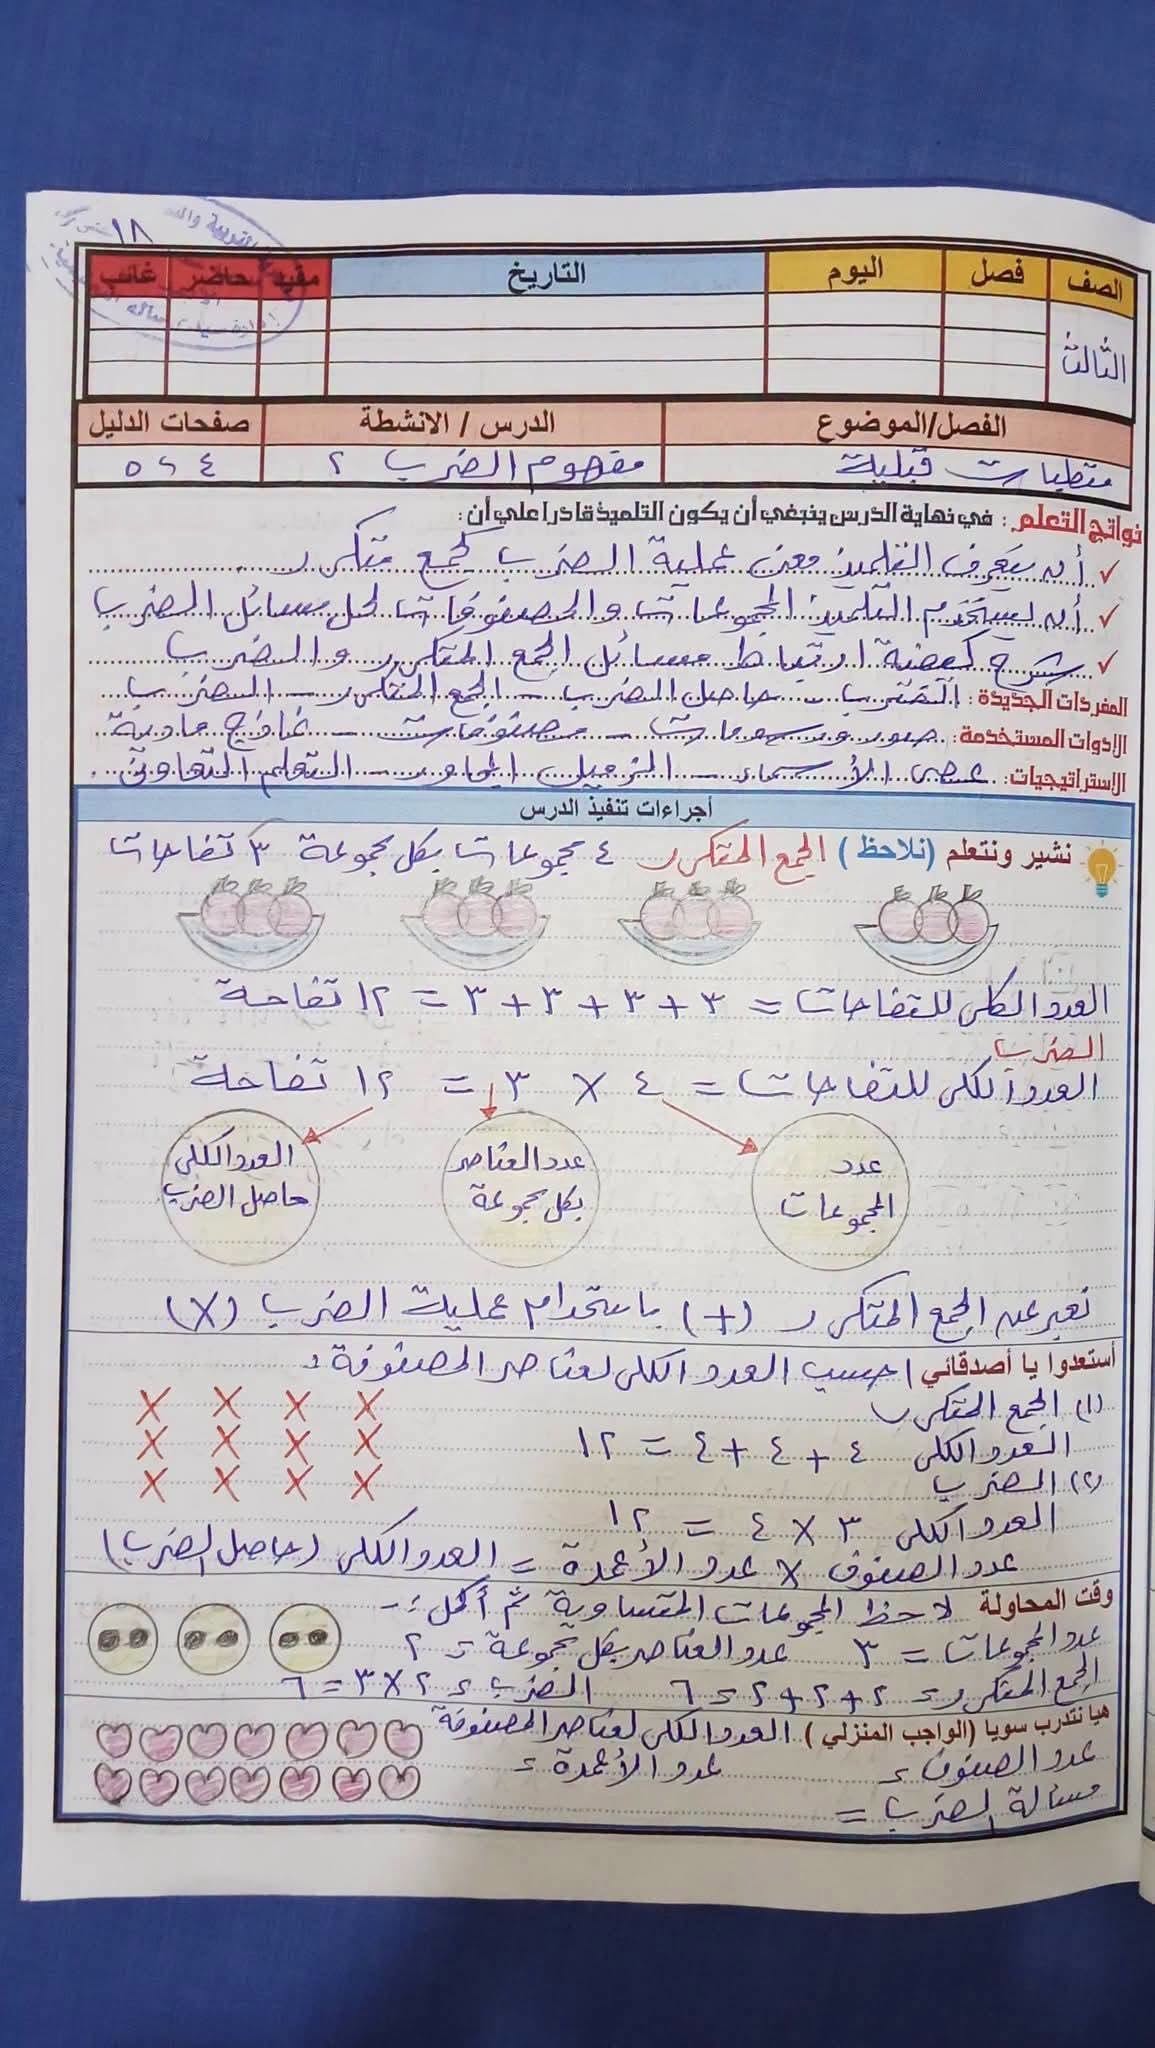 ١٨
الصف فصل اليوم التاريخ مقيد حاضر غائب
الثالث
الفصل/الموضوع الدرس / الانشطة صفحات الدليل
متطلبات قبلية مفهوم الضرب ٢ ٤ ، ٥
نواتج التعلم : في نهاية الدرس ينبغي أن يكون التلميذ قادرا علي أن:
✓ أن يتعرف التلميذ معنى عملية الضرب كجمع متكرر
✓ أن يستخدم التلميذ المجموعات والمصفوفات لحل مسائل الضرب
✓ شرح كيفية ارتباط مسائل الجمع المتكرر والضرب
المفردات الجديدة : الضرب - حاصل الضرب - الجمع المتكرر - الضرب
الادوات المستخدمة: صور ورسومات - مصفوفات - نماذج مادية
الاستراتيجيات: عصى الأسماء - الزميل المجاور - التعلم التعاوني
أجراءات تنفيذ الدرس
نشير ونتعلم (نلاحظ) الجمع المتكرر ٤ مجموعات بكل مجموعة ٣ تفاحات
العدد الكلى للتفاحات = ٣ + ٣ + ٣ + ٣ = ١٢ تفاحة
الضرب
العدد الكلى للتفاحات = ٤ × ٣ = ١٢ تفاحة
عدد المجموعات
عدد العناصر بكل مجموعة
العدد الكلى حاصل الضرب
نعبر عن الجمع المتكرر (+) باستخدام عملية الضرب (×)
أستعدوا يا أصدقائي احسب العدد الكلى لعناصر المصفوفة :
(١) الجمع المتكرر
العدد الكلى ٤ + ٤ + ٤ = ١٢
(٢) الضرب
العدد الكلى ٣ × ٤ = ١٢
عدد الصفوف × عدد الأعمدة = العدد الكلى (حاصل الضرب)
وقت المحاولة لاحظ المجموعات المتساوية ثم أكمل :-
عدد المجموعات = ٣ عدد العناصر بكل مجموعة = ٢
الجمع المتكرر = ٢ + ٢ + ٢ = ٦ الضرب = ٢ × ٣ = ٦
هيا نتدرب سويا (الواجب المنزلي) العدد الكلى لعناصر المصفوفة
عدد الصفوف = عدد الأعمدة =
مسألة الضرب =